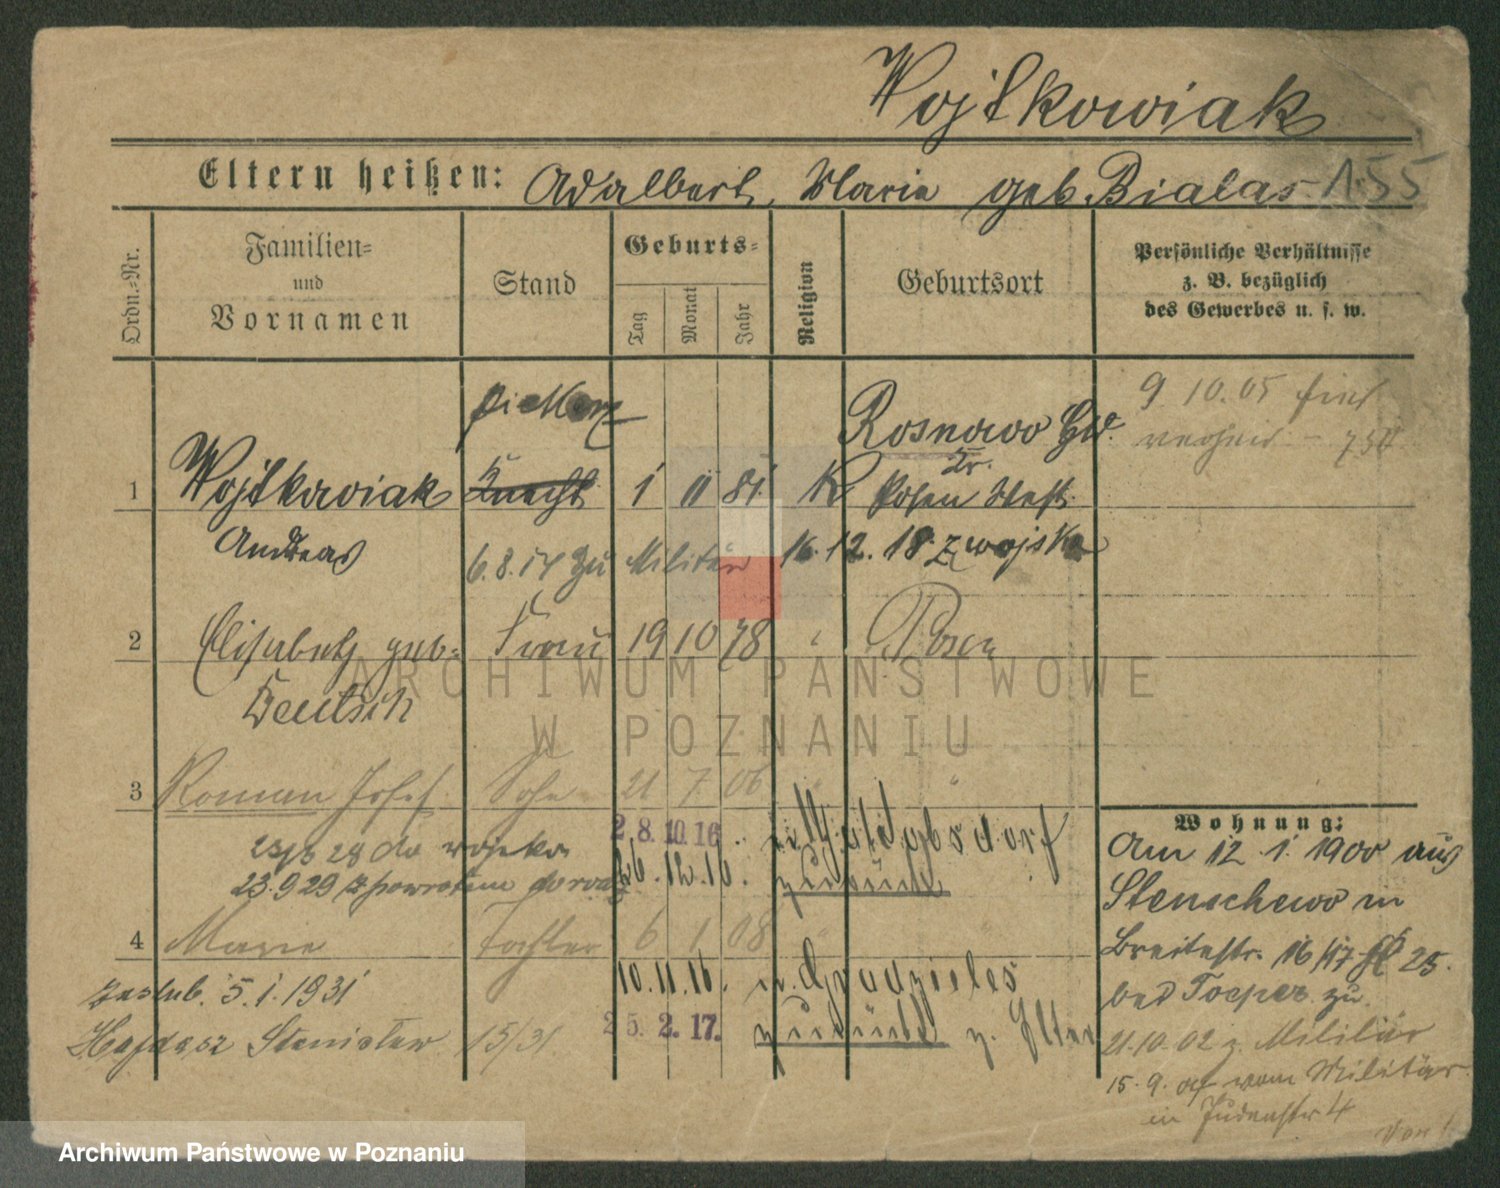 Wojtkowiak
Eltern heißen: Adalbert, Marie geb. Bialas 155
Ordn.-Nr.
Familien-
und
Vornamen
Stand
Geburts-
Tag
Monat
Jahr
Religion
Geburtsort
Persönliche Verhältnisse
z. B. bezüglich
des Gewerbes u. s. w.
9 10.05
Rosnowo Gd.
Kr.
1 Wojtkowiak Knecht 1 11 81 K Posen West
Andreas
6.8.14 zu Militär 16.12.18 z wojska
2 Elisabeth geb. Frau 19 10 78 " Posen
Deutsch
3 Roman Josef Sohn 21 7 06 " "
28.10.16. n. Waldgbsdorf
28 do wojska
26.12.16. zurück
23.9.29 z powrotem
4 Marie Tochter 6 1 08
10.11.16. n. Gradzieles
zaslub. 5.1.1931
25.2.17. zurück z. Elter
Stanisław 15/31
Wohnung:
Am 12 1. 1900 aus
Stenschewo in
Breitestr. 16/17 25.
bei Toeper zu
21.10.02 z. Militär
15.9. vom Militär
in Judenstr 4
Von
ARCHIWUM PAŃSTWOWE
W POZNANIU
Archiwum Państwowe w Poznaniu